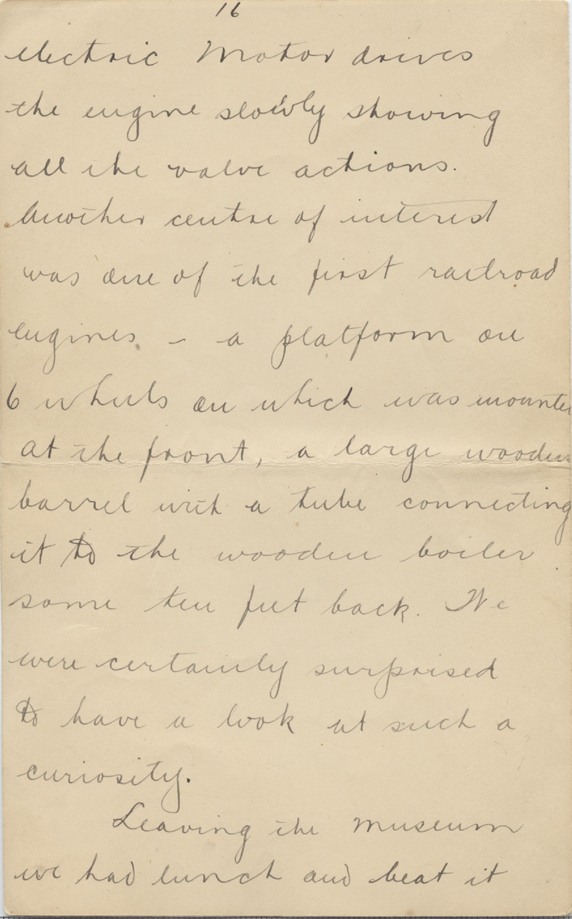 16
electric Motor drives
the engine slowly showing
all the valve actions.
Another centre of interest
was one of the first railroad
engines - a platform on
6 wheels on which was mounte
at the front, a large wooden
barrel with a tube connecting
it to the wooden boiler
some ten feet back. We
were certainly surprised
to have a look at such a
curiosity.
Leaving the museum
we had lunch and beat it